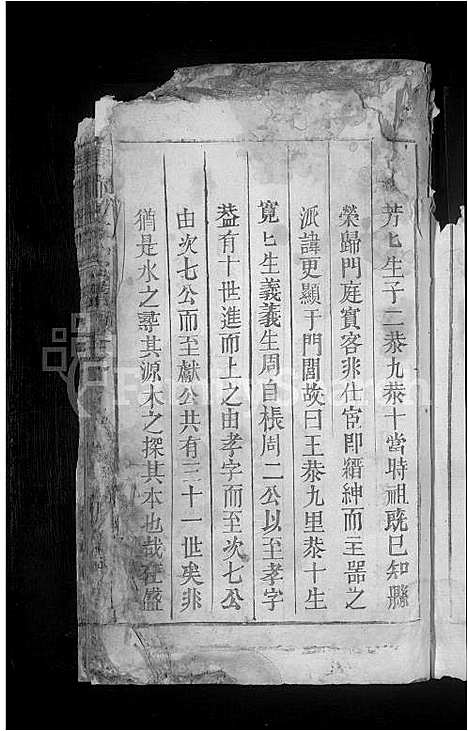 芳匕生子二恭九恭十當時祖旣已知縣
榮歸門庭賓客非仕宦即縉紳而主器之
派諱更顯于門閭故曰王恭九里恭十生
寬匕生義義生周自棖周二公以至孝字
葢有十世進而上之由孝字而至次七公
由次七公而至獻公共有三十一世矣非
猶是水之尋其源木之探其本也哉在盛